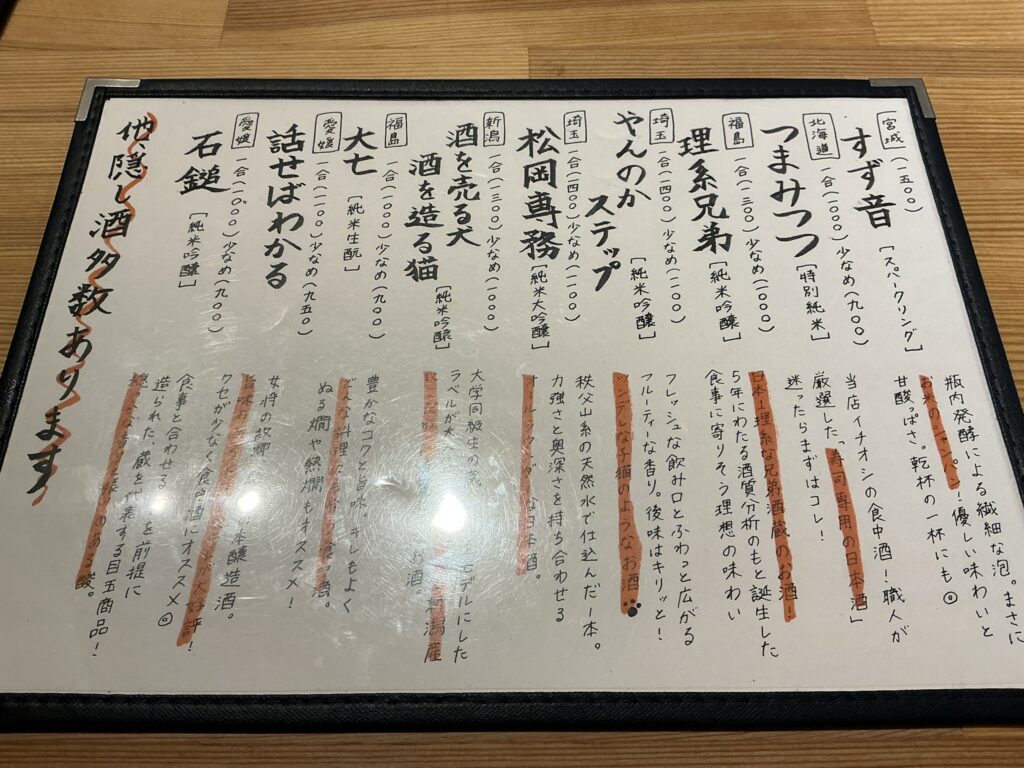 宮城 (一一五〇)
すず音 [スパークリング]
瓶内発酵による繊細な泡。まさに
お米のシャンパン!優しい味わいと
甘酸っぱさ。乾杯の一杯にも◎
北海道 一合(一一〇〇)少なめ(九〇〇)
つまみつつ [特別純米]
当店イチオシの食中酒!職人が
厳選した「寿司専用の日本酒」
迷ったらまずはコレ!
福島 一合(一三〇〇)少なめ(一〇〇〇)
理系兄弟 [純米吟醸]
日本1理系な兄弟酒蔵のお酒!
5年にわたる酒質分析のもと誕生した
食事に寄りそう理想の味わい
埼玉 一合(一四〇〇)少なめ(一一〇〇)
やんのか
ステップ [純米吟醸]
フレッシュな飲み口とふわっと広がる
フルーティーな香り。後味はキリッと!
ツンデレな子猫のようなお酒
埼玉 一合(一四〇〇)少なめ(一一〇〇)
松岡専務 [純米大吟醸]
秩父山系の天然水で仕込んだ一本。
力強さと奥深さを持ち合わせる
オールラウンダーな日本酒。
新潟 一合(一三〇〇)少なめ(一〇〇〇)
酒を売る犬
酒を造る猫 [純米吟醸]
大学同級生の モデルにした
ラベルが 新潟産
お酒。
福島 一合(一一〇〇)少なめ(九〇〇)
大七 [純米生酛]
豊かなコクと旨味、キレもよく
どんな料理に 酒。
ぬる燗や熱燗もオススメ!
愛媛 一合(一一〇〇)少なめ(九五〇)
話せばわかる
女将の故郷 本醸造酒。
が大好評!
クセが少なく食中酒にオススメ◎
愛媛 一合(一一〇〇)少なめ(九〇〇)
石鎚 [純米吟醸]
食事と合わせる を前提に
造られた、蔵を代表する目玉商品!
のある酸。
他、隠し酒多数あります